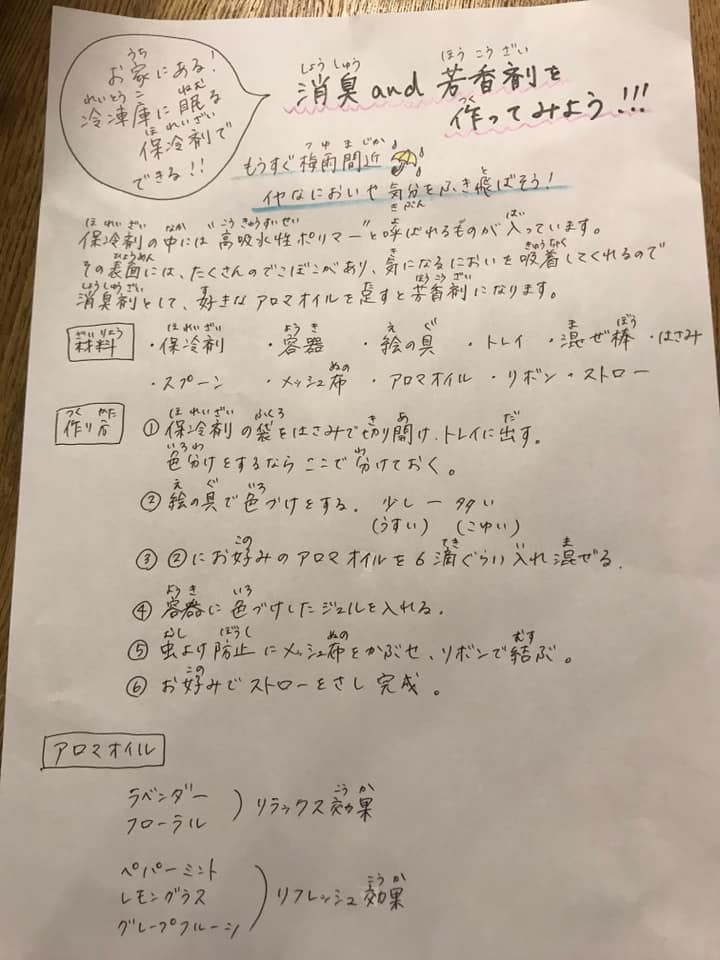 お家にある!
冷凍庫に眠る
保冷剤で
できる!!
消臭and芳香剤を
作ってみよう!!!
もうすぐ梅雨間近
イヤなにおいや気分をふき飛ばそう!
保冷剤の中には"高吸水性ポリマー"と呼ばれるものが入っています。
その表面には、たくさんのでこぼこがあり、気になるにおいを吸着してくれるので
消臭剤として、好きなアロマオイルを足すと芳香剤になります。
材料 ・保冷剤 ・容器 ・絵の具 ・トレイ ・混ぜ棒 ・はさみ
・スプーン ・メッシュ布 ・アロマオイル ・リボン ・ストロー
作り方 ① 保冷剤の袋をはさみで切り開け、トレイに出す。
色分けをするならここで分けておく。
② 絵の具で色づけをする。 少し ー 多い
(うすい) (こゆい)
③ ②にお好みのアロマオイルを6滴ぐらい入れ混ぜる。
④ 容器に色づけしたジェルを入れる。
⑤ 虫よけ防止にメッシュ布をかぶせ、リボンで結ぶ。
⑥ お好みでストローをさし完成。
アロマオイル
ラベンダー
フローラル
リラックス効果
ペパーミント
レモングラス
グレープフルーツ
リフレッシュ効果